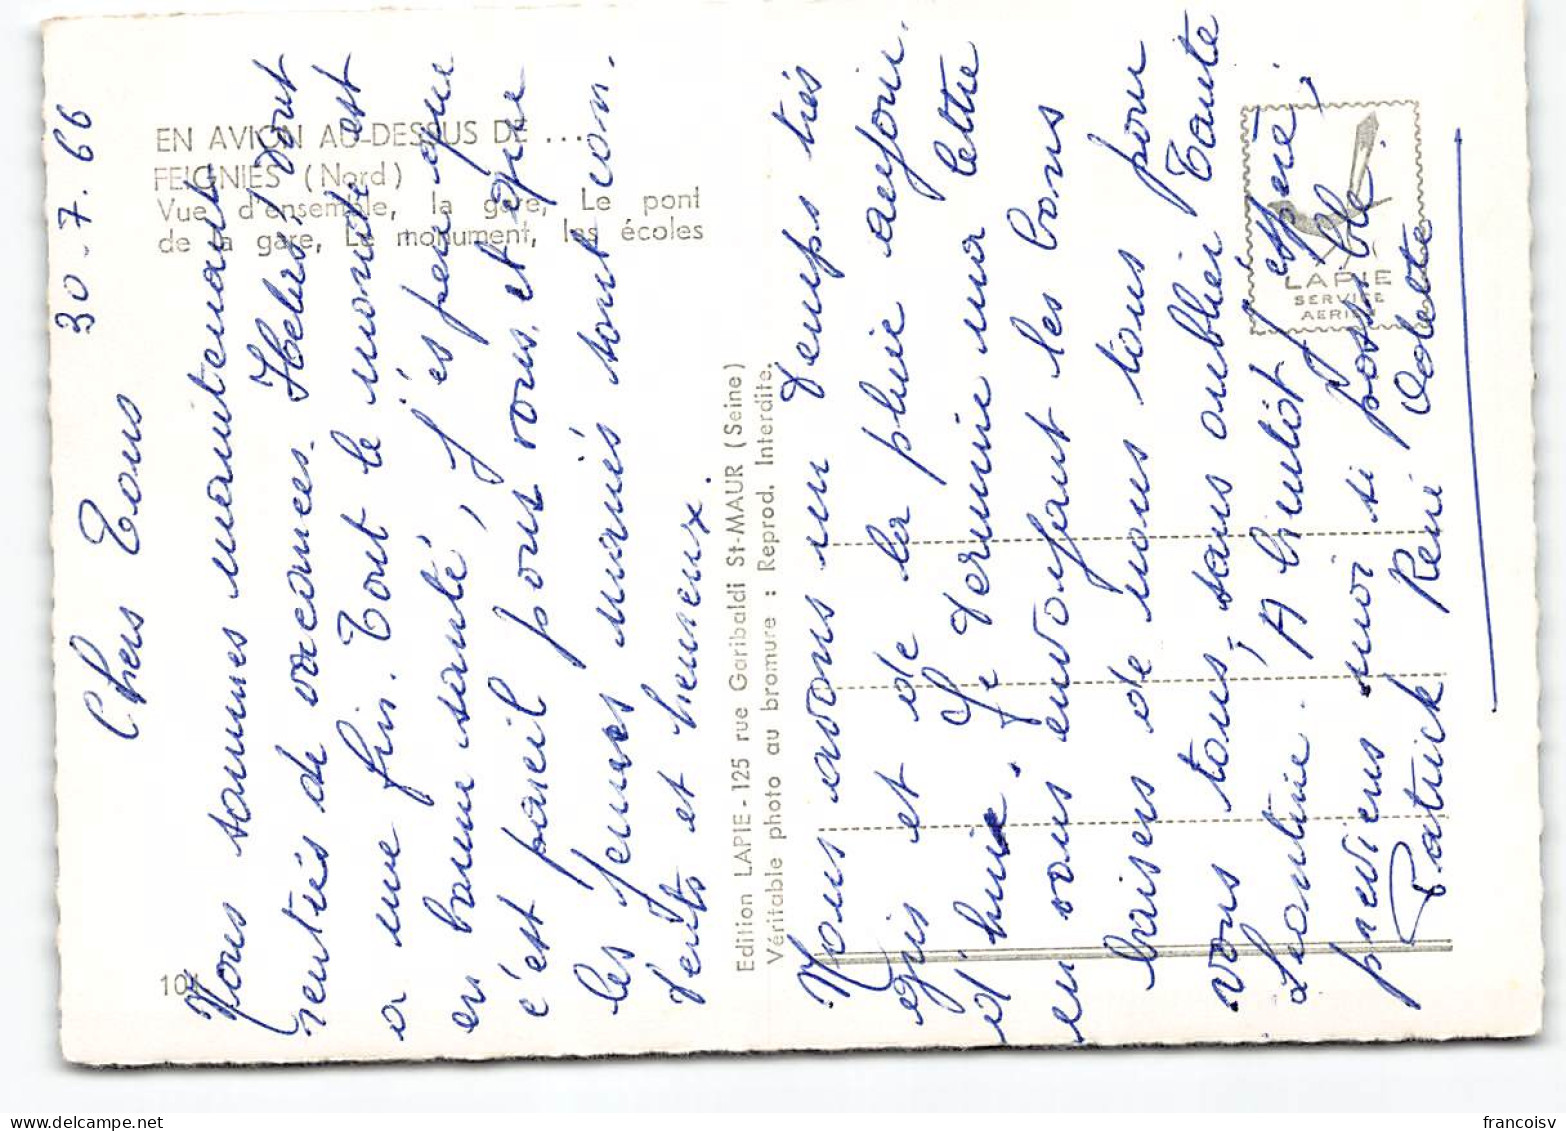 EN AVION AU-DESSUS DE ...
FEIGNIES (Nord)
Vue d'ensemble, la gare, Le pont
de la gare, Le monument, les écoles
10
Edition LAPIE - 125 rue Garibaldi St-MAUR (Seine)
Véritable photo au bromure : Reprod. Interdite.
LAPIE
SERVICE
AERIEN
30-7.66
Chers Tous
Nous sommes maintenant
rentrés de vacances. Hélas, tout
a une fin. Tout le monde est
en bonne santé, j'éspère que
c'est pareil pour vous, et que
les jeunes mariés sont con-
tents et heureux.
Nous avons un temps très
gris et de la pluie aujour-
d'huie. Je termine ma lettre
en vous envoyant les bons
baisers de nous tous pour
vous tous, sans oublier Tante
Léontine. A bientôt j'éspère,
previens moi si possible.
Patrick René Odette
francoisv